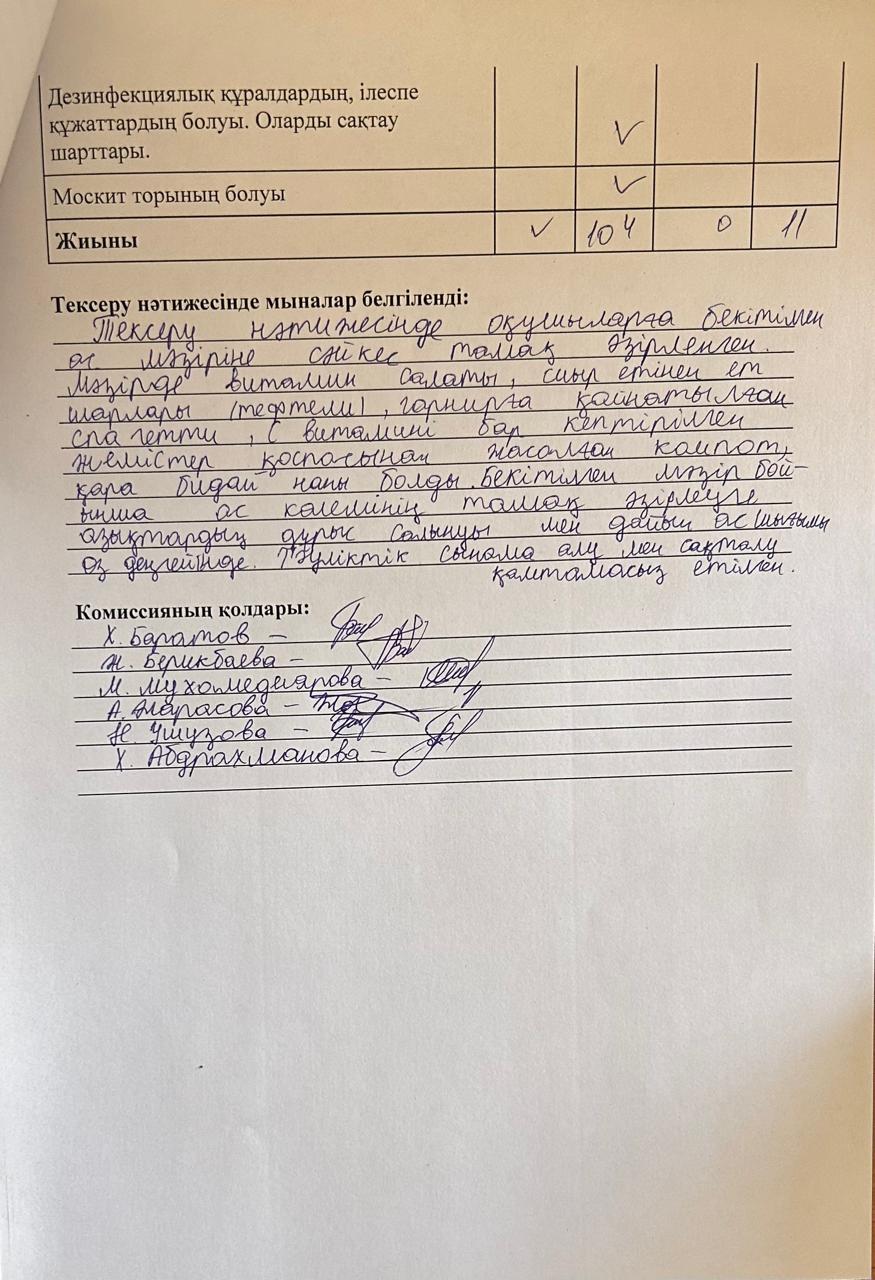 Дезинфекциялық құралдардың, ілеспе
құжаттардың болуы. Оларды сақтау ✓
шарттары.
Москит торының болуы ✓
Жиыны ✓ 104 0 11
Тексеру нәтижесінде мыналар белгіленді:
Тексеру нәтижесінде оқушыларға бекітілген
ас мәзіріне сәйкес тамақ әзірленген.
Мәзірде витамин салаты, сиыр етінен ет
шарлары (тефтели), гарнирға қайнатылған
спагетти, С витамині бар кептірілген
жемістер қоспасынан жасалған компот,
қара бидай наны болды. Бекітілген мәзір бой-
ынша ас көлемінің тамақ әзірлеуге
азықтардың дұрыс салынуы мен дайын ас шығымы
өз деңгейінде. Тәуліктік сынама алу мен сақталу
қамтамасыз етілген.
Комиссияның қолдары:
Х. Баратов –
Ж. Берикбаева –
М. Мухамедиярова –
А. Жарасова –
Н
Х. Абдрахманова –